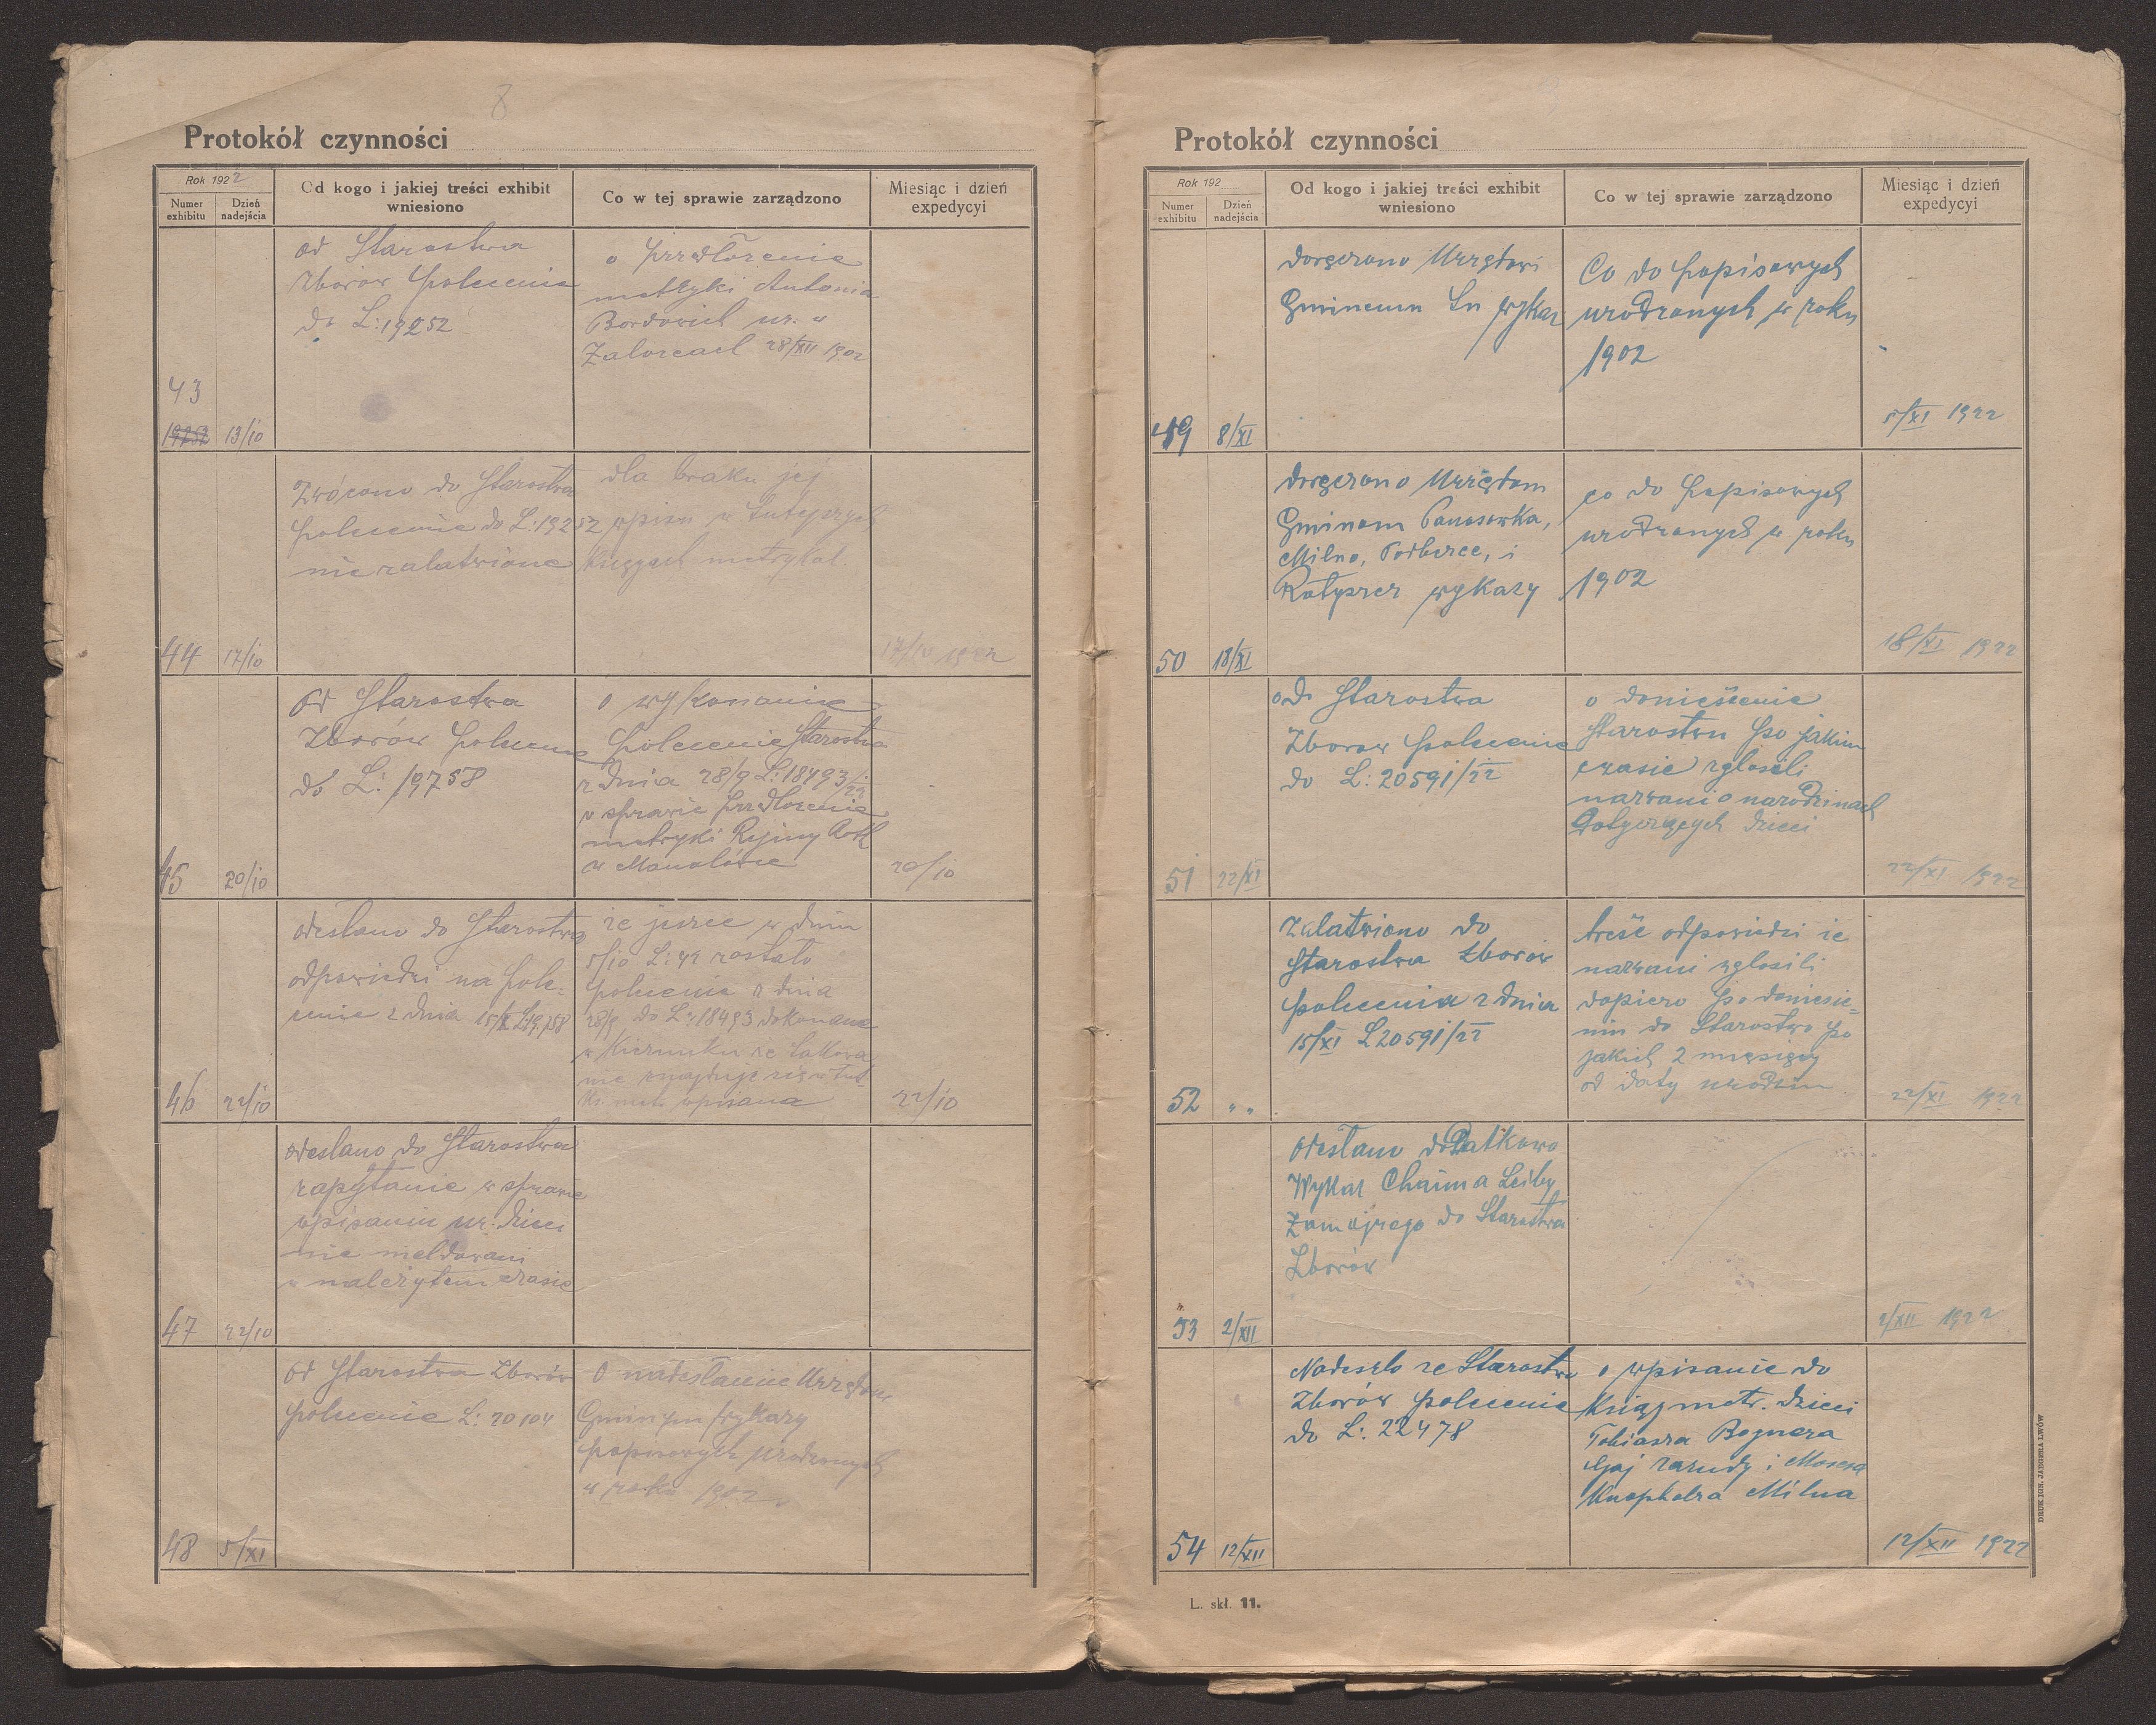 8
Protokół czynności
Rok 1922
Numer exhibitu
Dzień nadejścia
Od kogo i jakiej treści exhibit wniesiono
Co w tej sprawie zarządzono
Miesiąc i dzień expedycyi
od Starostwa
Zborów polecenie
do L: 19252
o przedłożenie
metryki Antonia
ur. w
Załoscach 28/XII 1902
43
19252
13/10
Zwócono do Starostwa
polecenie do L: 19252
nie załatwione
dla braku jej
wpisu w tutejszych
księgach metrykal
44
17/10
17/10 1922
Od Starostwa
Zborów polecenie
do L: 19758
o wykonanie
polecenie Starostwa
z dnia 28/9 L: 18493/22
w sprawie przedłozenia
metryki Rejiny Roth
w Manolówce
45
20/10
20/10
odesłano do Starostwa
odpowiedzi na pole-
cenie z dnia 15/X L: 19758
że jeszce w dniu
5/10 L: 42 zostało
polecenie z dnia
28/9 do L: 18493 dokonane
w kierunku że takowa
nie znajduje się w tut.
ks. met. wpisana
46
22/10
22/10
odesłano do Starostwa
zapytanie w sprawie
wpisaniu ur. dzieci
nie meldowani
w należytem czasie
47
22/10
od Starostwa Zborów
polecenie L: 20104
O nadesłanie Urzędom
Gminnym wykazy
popisowych urodzonych
w roku 1902
48
5/XI
Protokół czynności
Rok 192
Numer exhibitu
Dzień nadejścia
Od kogo i jakiej treści exhibit wniesiono
Co w tej sprawie zarządzono
Miesiąc i dzień expedycyi
doręczono Urzędowi
Gminemu tu wykaz
Co do popisowych
urodzonych w roku
1902
49
8/XI
8/XI 1922
doręczono Urzędom
Gminom Panasowka,
Milno, Podberce, i
Ratyszcz wykazy
co do popisowych
urodzonych w roku
1902
50
18/XI
18/XI 1922
od Starostwa
Zborow polecenie
do L: 20591/22
o doniesienie
Starostwu po jakim
czasie zgłosili
nazwani o narodzinach
dotyczących dzieci
51
22/XI
22/XI 1922
Załatwiono do
Starostwa Zborów
polecenia z dnia
15/XI L 20591/22
treść odpowiedzi że
nazwani zgłosili
dopiero po doniesie-
niu do Starostwo po
jakich 2 mięsięcy
od daty urodzin
52
" "
22/XI 1922
Odesłano dodatkowo
Wykaz Chaima Leiby
Zamojrego do Starostwa
Zborów
53
2/XII
2/XII 1922
Nadeszło ze Starostwa
Zborów polecenie
do L: 22478
o wpisanie do
Ksiąg metr. dzieci
Tobiasza Bognera
Gaj zarudz i Mosesa
Knopholza Milna
54
12/XII
12/XII 1922
L. skł. 11.
DRUK IGN. JAEGERA LWÓW